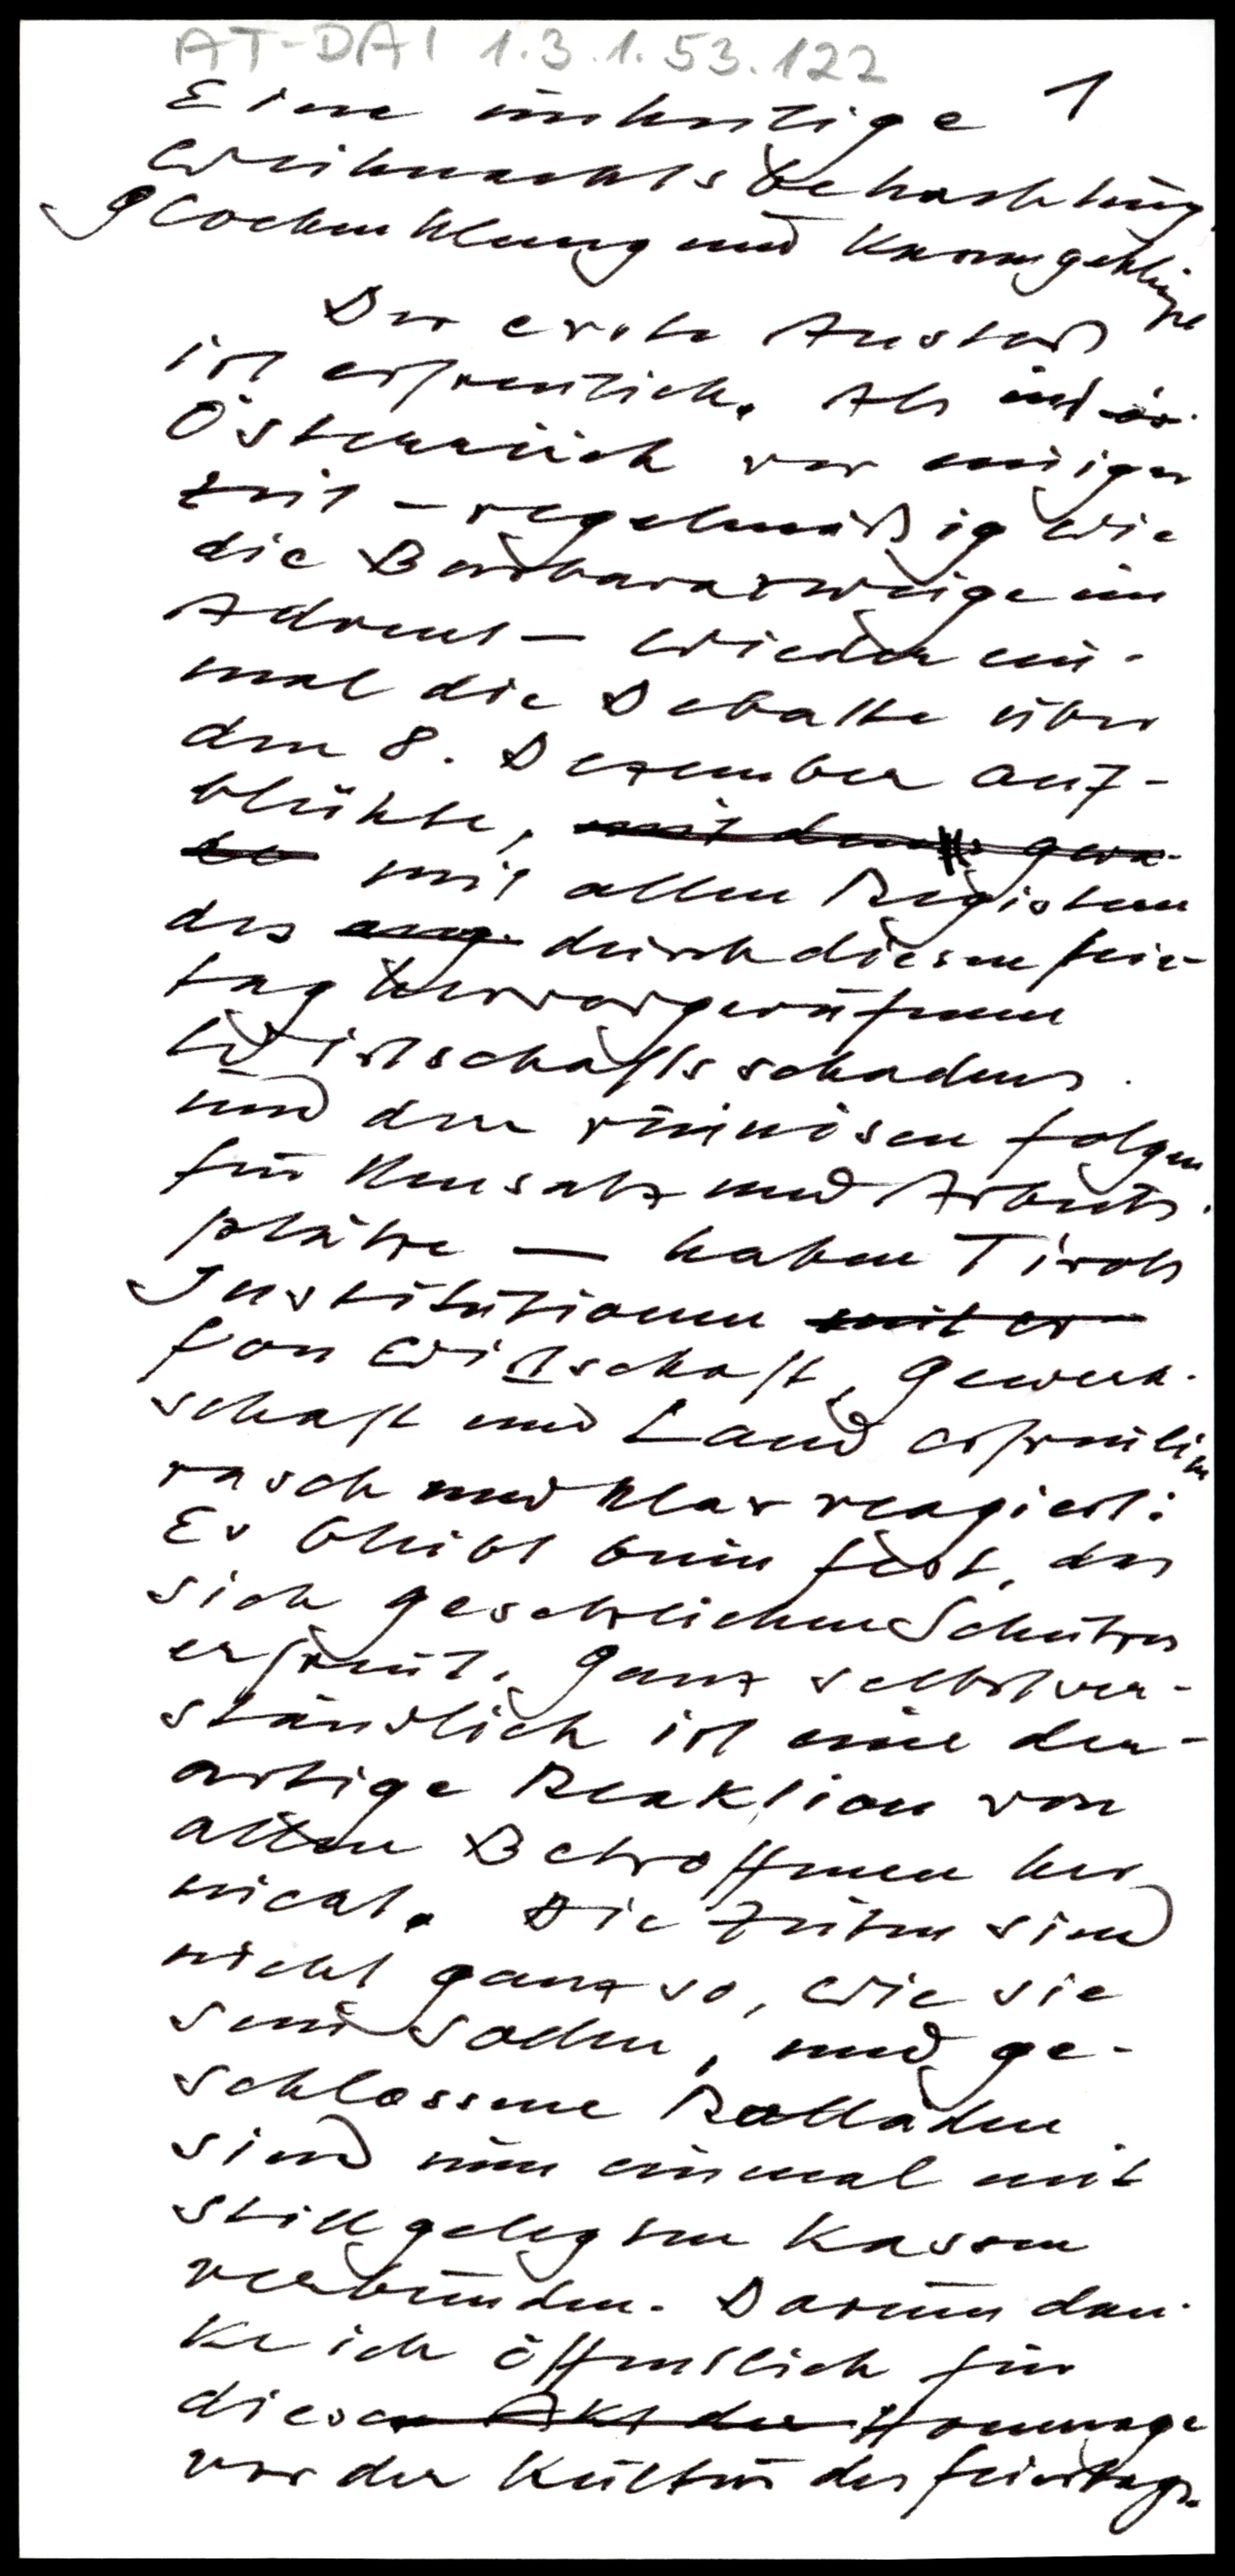 AT-DAI 1.3.1.53.122
1
Eine
Weihnachtsbetrachtung
Glockenklang und
Der erste Anstoß
ist erfreulich. Als in
Österreich vor einiger
Zeit – regelmäßig wie
die Barbarazweige im
Advent – wieder ein-
mal die Debatte über
den 8. Dezember auf-
blühte, mit dem
mit allen Registern
des durch diesen Feier-
tag hervorgerufenen
Wirtschaftsschadens
und den ruinösen Folgen
für Umsatz und Arbeits-
plätze – haben Tirols
Institutionen mit er
von Wirtschaft, Gewerk-
schaft und Land erfreulich
rasch und klar reagiert:
Es bleibt beim Fest, das
sich gesetzlichen Schutzes
erfreut. Ganz selbstver-
ständlich ist eine der-
artige Reaktion von
allen Betroffenen her
nicht. Die Zeiten sind
nicht ganz so, wie sie
sein sollen, und ge-
schlossene Rolläden
sind nun einmal mit
stillgelegten Kassen
verbunden. Darum dan-
ke ich öffentlich für
diesen Akt der Hommage
vor der Kultur des Feiertags.